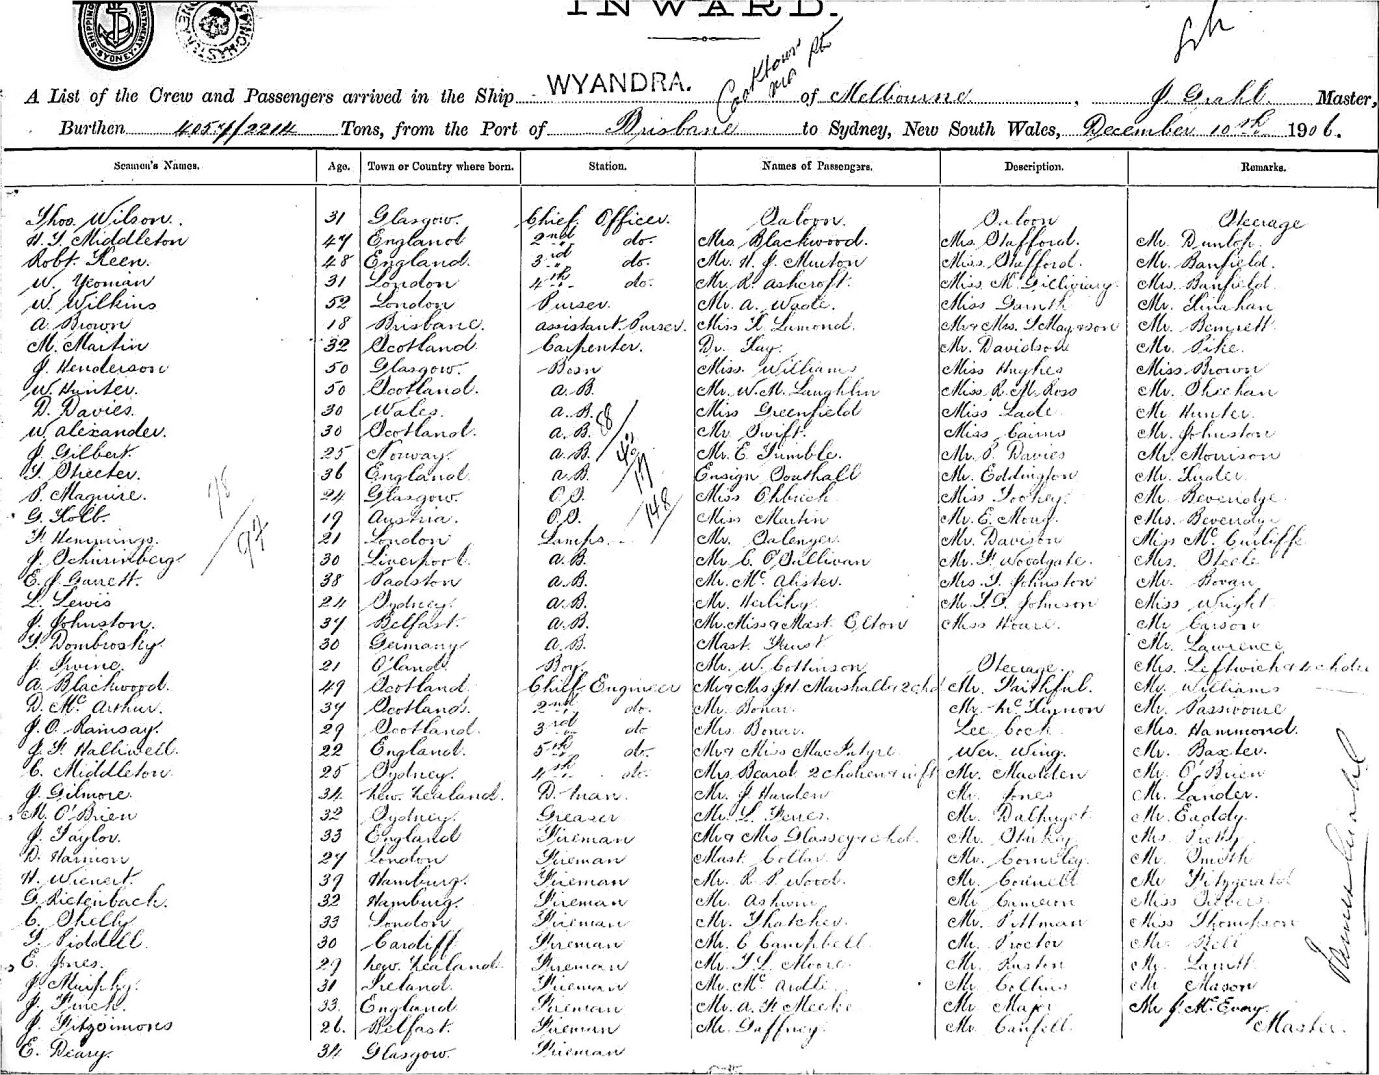 INWARD.
WYANDRA.
A List of the Crew and Passengers arrived in the Ship WYANDRA. Cooktown via Pts of Melbourne, J. Grahl Master,
Burthen 4057/2214 Tons, from the Port of Brisbane to Sydney, New South Wales, December 10th 1906.
Seamen's Names. Age. Town or Country where born. Station. Names of Passengers. Description. Remarks.
Thos Wilson. 31 Glasgow. Chief Officer. Saloon. Saloon Steerage
H. T. Middleton 47 England 2nd do. Mrs Blackwood. Mrs Stafford. Mr Dunlop.
Robt Keen. 48 England. 3rd do. Mr. H. J. Murton Miss Stafford. Mr. Banfield.
W. Yeoman 31 London 4th do. Mr R. Ashcroft. Miss Mc Mrs. Banfield.
W. Wilkins 52 London Purser. Mr. A. Wade. Miss Mr. Linahan
A. Brown 18 Brisbane. assistant Purser. Miss K. Lumond. Mr & Mrs. Mr. Bennett.
M. Martin 32 Scotland Carpenter. Dr. Kay. Mr. Davidson Mr. Pike.
J. Henderson 50 Glasgow. Bosn Miss. Williams Miss Hughes Miss Brown
W. Hunter. 50 Scotland. A. B. Mr. W. McLaughlin Miss R. M. Ross Mr. Sheehan
D. Davies. 30 Wales. A. B. Miss Greenfield Miss Lade. Mr Hunter.
W. Alexander. 30 Scotland. A. B. Mr Swift. Miss Cairns Mr. Johnston
J. Gilbert. 25 Norway. A. B. Mr. E. Tumble. Mr. P. Davies Mr. Morrison
T. Streeter. 36 England. A. B. Ensign Southall Mr. Eddington Mr.
P. Maguire. 24 Glasgow O.S. Miss Miss Tookey. Mr. Beveridge.
G. Kolb. 19 Austria. O.S. Miss Martin Mr. E. Mrs. Beveridge
H. Hemmings. 21 London Lamps. Mr. Salenger. Mr. Davison Miss Mc Cunliffe
J. Schurinberg 30 Liverpool. A. B. Mr. C. O'Sullivan Mr. H. Woodgate. Mrs. Steele
E. J. Garrett. 38 Padston A. B. Mr. Mc Alister. Mrs. T. Johnston Mr. Bovan
L. Lewis 24 Sydney. A. B. Mr. Herlihy. Mr. Johnson Miss Wright
J. Johnston. 37 Belfast. A. B. Mr. Miss & Mast. Elton Miss Hoare. Mr Carson
T. Dombrosky 30 Germany A. B. Mast. Mr. Lawrence
J. Irvine. 21 O'land Boy Mr. W. Cottinson Steerage. Mrs. Leftwich & 4 chdn
A. Blackwood. 49 Scotland. Chief Engineer Mr & Mrs J. H. Marshall & 2 chd Mr. Faithful. Mr. Williams
D. Mc Arthur. 37 Scotland. 2nd do. Mr. Bonar. Mr. McKinnon Mr.
J. O. Ramsay. 29 Scotland. 3rd do Mrs. Bonar. Lee Cock Mrs. Hammond.
J. H. Halliwell. 22 England. 5th do. Mr & Miss MacIntyre Wer. Wing. Mr. Baxter.
C. Middleton. 25 Sydney. 4th do. Mrs. Beard 2 chdren & inft Mr. Madden Mr. O'Brien
J. Gilmore. 34 New Zealand. D. man. Mr. J. Harden Mr. Jones Mr. Lander.
M. O'Brien 32 Sydney. Greaser Mr. L. Mr. Mr. Eaddy.
J. Taylor. 33 England Fireman Mr & Mrs Glassey & chd. Mr. Mrs.
D. Harmon 27 London Fireman Mast. Mr. Mr Smith
H. Wienert. 39 Hamburg. Fireman Mr. R. P. Wood. Mr. Cornell Mr Fitzgerald
G. Rietenbach. 32 Hamburg. Fireman Mr. Mr. Cameron Miss
C. Shelly 33 London Fireman Mr. Thatcher. Mr. Pittman Miss Thompson
T. Siddell. 30 Cardiff. Fireman Mr. C Campbell. Mr. Proctor Mr. Bell
E. Jones. 29 New Zealand. Fireman Mr. T. L. Moore. Mr. Ruston Mr.
J. Murphy. 31 Ireland. Fireman Mr. Mc Ardle Mr. Collins Mr Mason
J. Finch. 33. England Fireman Mr. A. H. Meeke Mr Major Mr J. Mc Evoy.
J. Fitzsimons 26. Belfast. Fireman Mr. Gaffney. Mr. Canfell. Master.
E. Deary. 34 Glasgow. Fireman
78
97
88
40
17
148